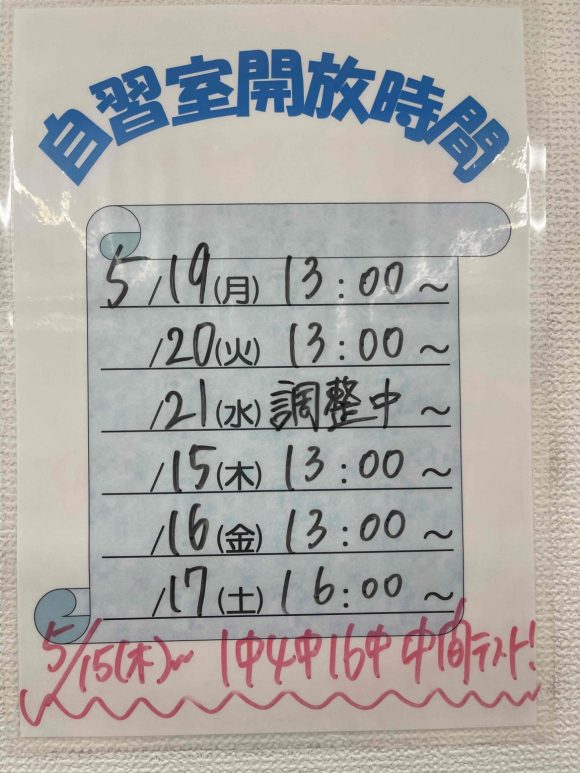 自習室開放時間
5/19(月) 13:00～
/20(火) 13:00～
/21(水) 調整中 ～
/15(木) 13:00～
/16(金) 13:00～
/17(土) 16:00～
5/15(木)～ 1中4中16中 中間テスト!